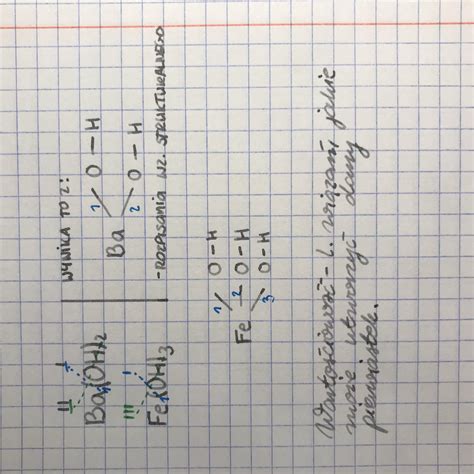 II I
Ba(OH)2
III I
Fe(OH)3
WYNIKA TO Z:
1 O-H
Ba
2 O-H
-ROZPISANIA WZ. STRUKTURALNEGO
1 O-H
Fe 2 O-H
3 O-H
Wartościowość - l. wiązań, jakie
może utworzyć dany
pierwiastek.